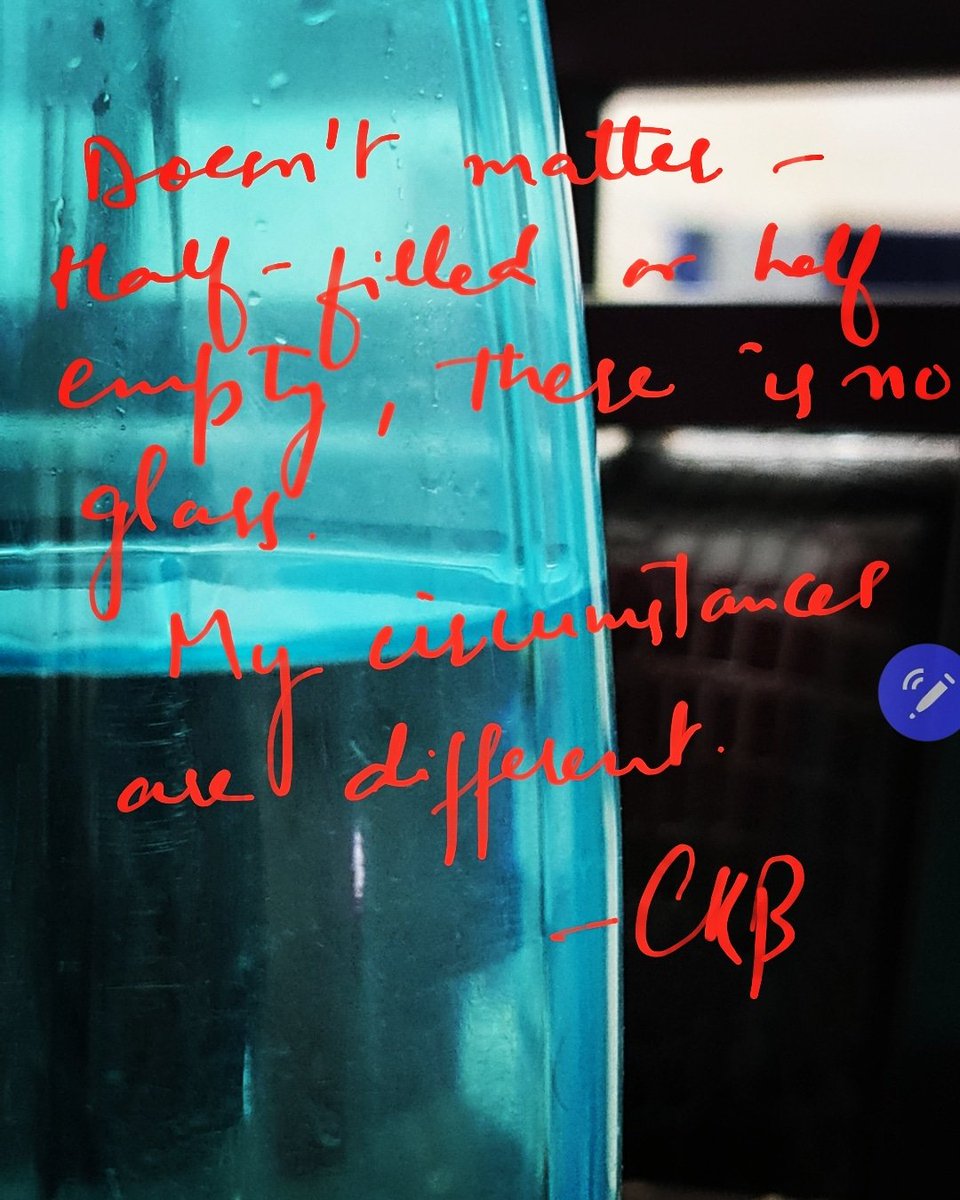 Doesn't matter -
Half-filled or half
empty, there is no
glass.
My circumstances
are different.
- CKB